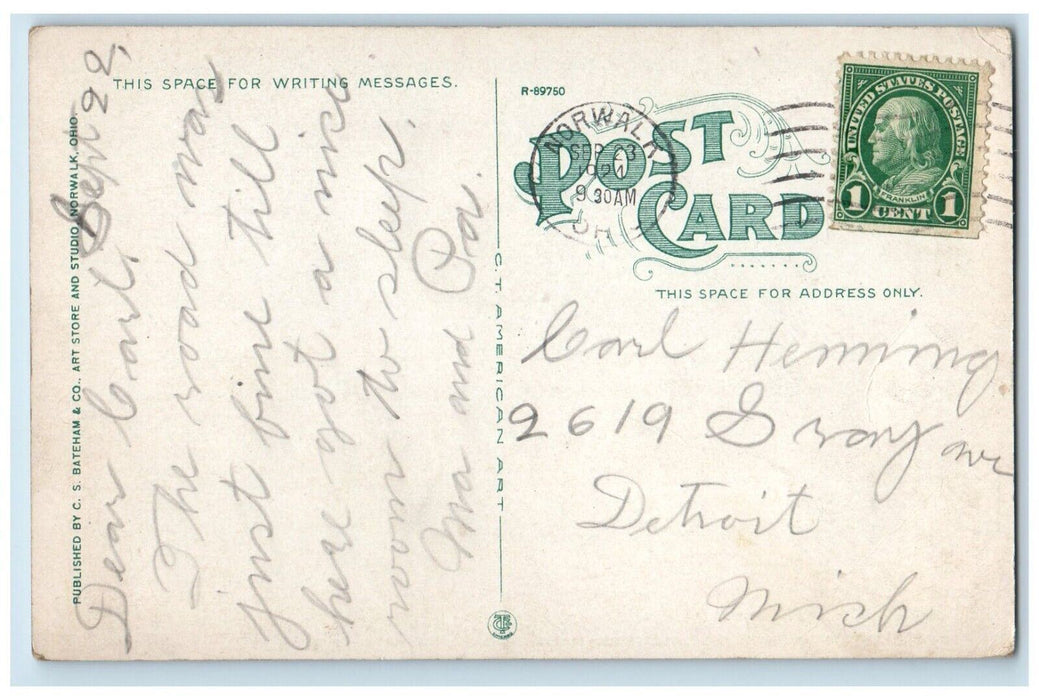 THIS SPACE FOR WRITING MESSAGES.
PUBLISHED BY C. S. BATEHAM & CO., ART STORE AND STUDIO, NORWALK, OHIO.
Sept 22,
Dear Carl,
The road was
just fine till
here got a nice
room to sleep.
Ma and Pa.
C.T. AMERICAN ART
R-89750
POST CARD
NORWALK
SEP 23
1924
9 30AM
OH
UNITED STATES POSTAGE
FRANKLIN
1 CENT 1
THIS SPACE FOR ADDRESS ONLY.
Carl Henning
2619 Gray ave
Detroit
Mich